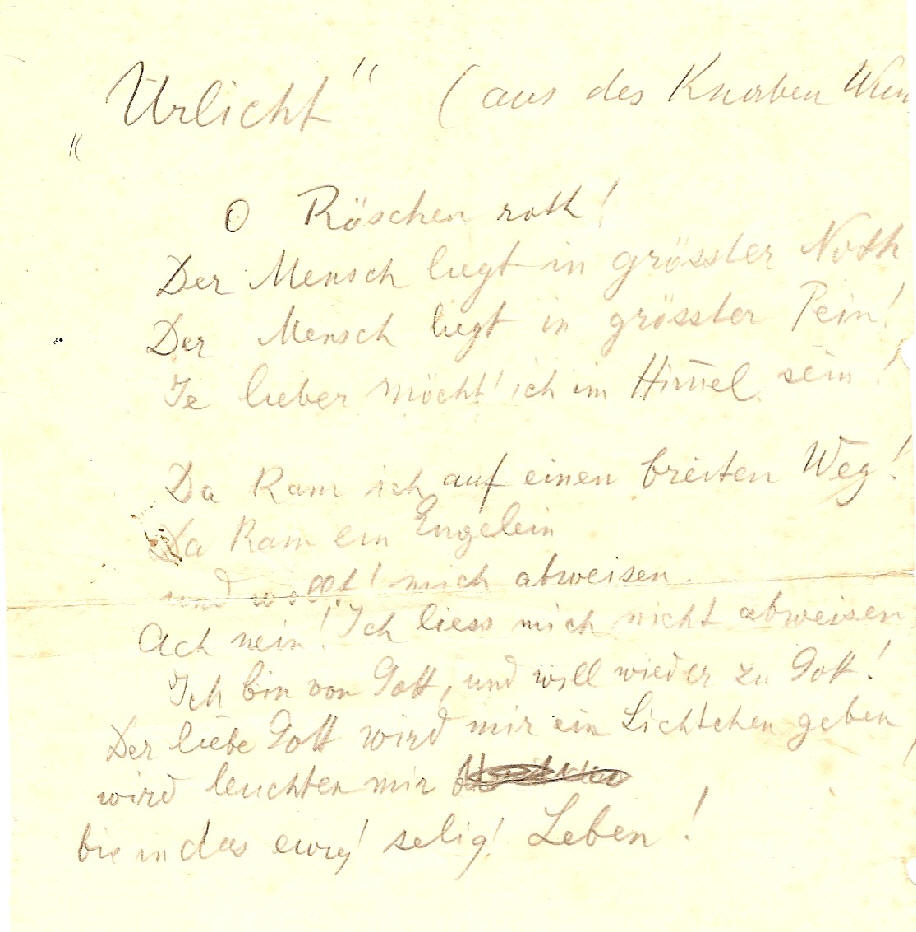 „Urlicht“ (aus des Knaben Wun
O Röschen roth!
Der Mensch liegt in grösster Noth
Der Mensch liegt in grösster Pein!
Je lieber möcht' ich im Him̄el sein!
Da kam ich auf einen breiten Weg!
Da kam ein Engelein
und wollt' mich abweisen
Ach nein! Ich liess mich nicht abweisen
Ich bin von Gott, und will wieder zu Gott!
Der liebe Gott wird mir ein Lichtchen geben,
wird leuchten mir
bis in das ewig' selig' Leben!